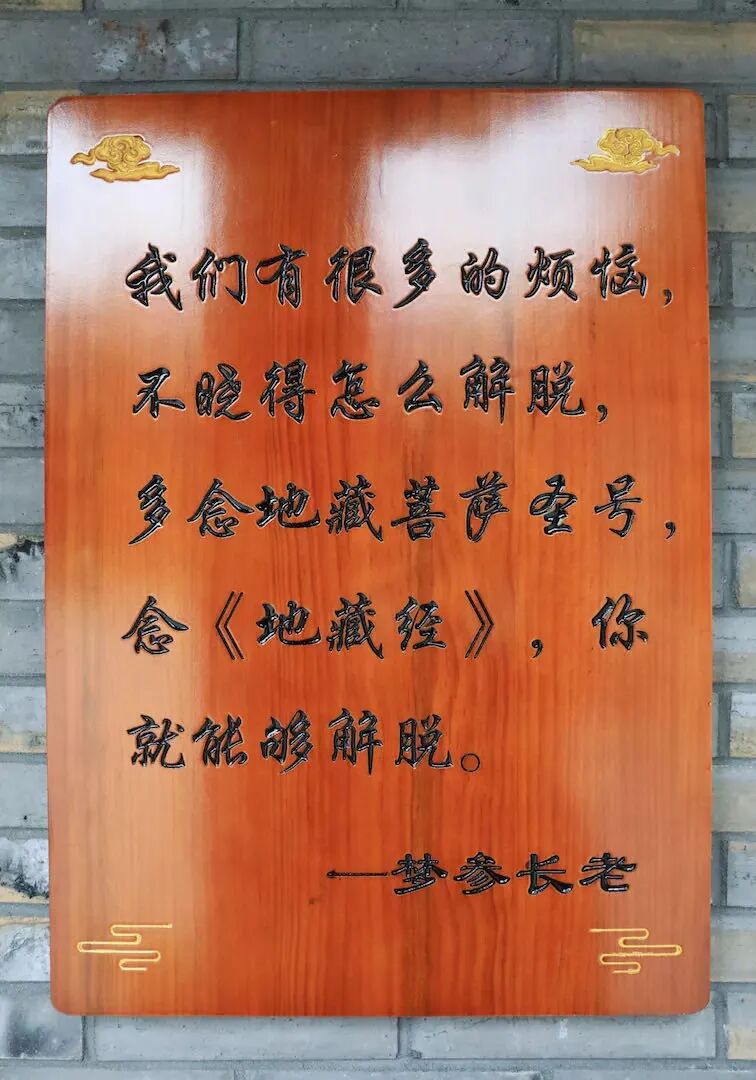 我们有很多的烦恼，
不晓得怎么解脱，
多念地藏菩萨圣号，
念《地藏经》，你
就能够解脱。
—梦参长老